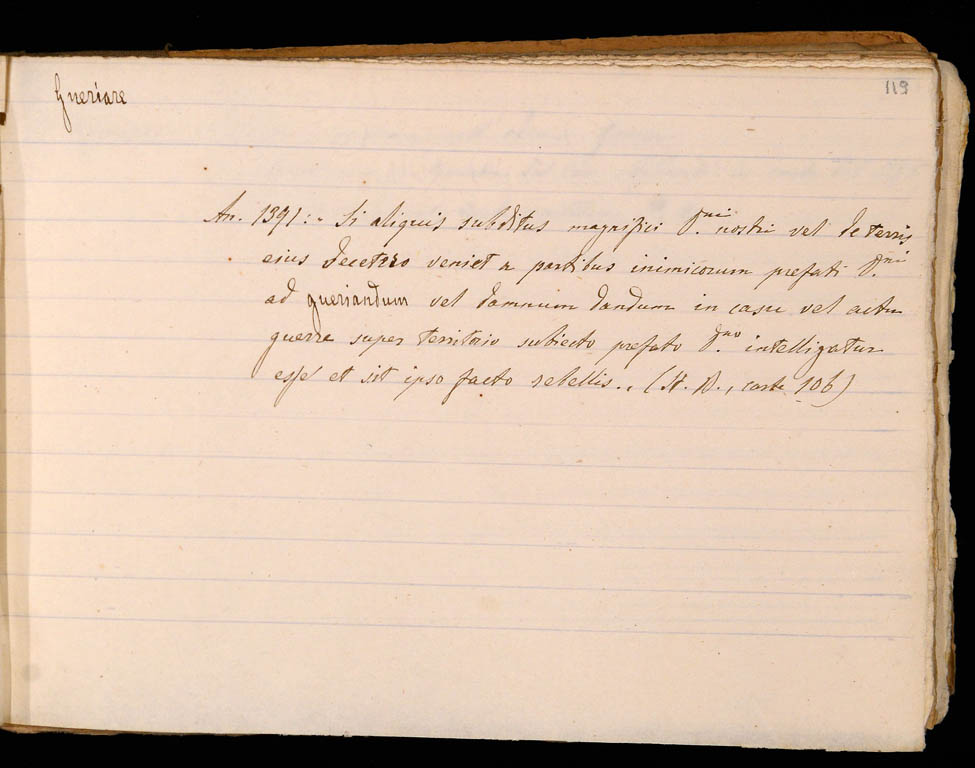 Gueriare
119
An. 1391:- Si aliquis subditus magnifici d.ni nostri vel de terris
eius decetero veniet a partibus inimicorum prefati d.ni
ad gueriandum vel damnum dandum in casu vel actu
guerre super territorio subiecto prefato d.no intelligatur
esse et sit ipso facto rebellis., (St. D., carte 106)